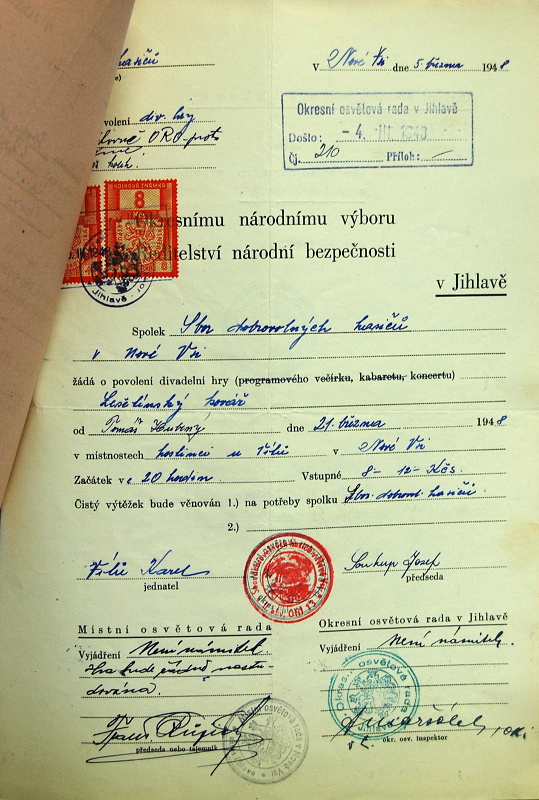 hasičů
V Nové Vsi dne 5. března 1948
e)
Okresní osvětová rada v Jihlavě
Došlo: - 4. III. 1948
Čj. 210 Příloh: /
ovolení div. hry
KOLKOVÁ ZNÁMKA
8
Okresnímu národnímu výboru
ředitelství národní bezpečnosti
v Jihlavě
Spolek Sbor dobrovolných hasičů
v Nové Vsi
žádá o povolení divadelní hry (programového večírku, kabaretu, koncertu)
Lešetínský kovář
od Tomáš dne 21. března 1948
v místnostech hostinci u Fišů v Nové Vsi
Začátek v e 20 hodin Vstupné 8 - 12 - Kčs.
Čistý výtěžek bude věnován 1.) na potřeby spolku Sbor. dobrovol. hasičů.
2.)
Karel
jednatel
Soukup Josef
předseda
Místní osvětová rada
Vyjádření Není námitek.
Hra bude řádně nastu-
dována.
předseda nebo tajemník
Okresní osvětová rada v Jihlavě
Vyjádření Není námitek.
okr. osv. inspektor